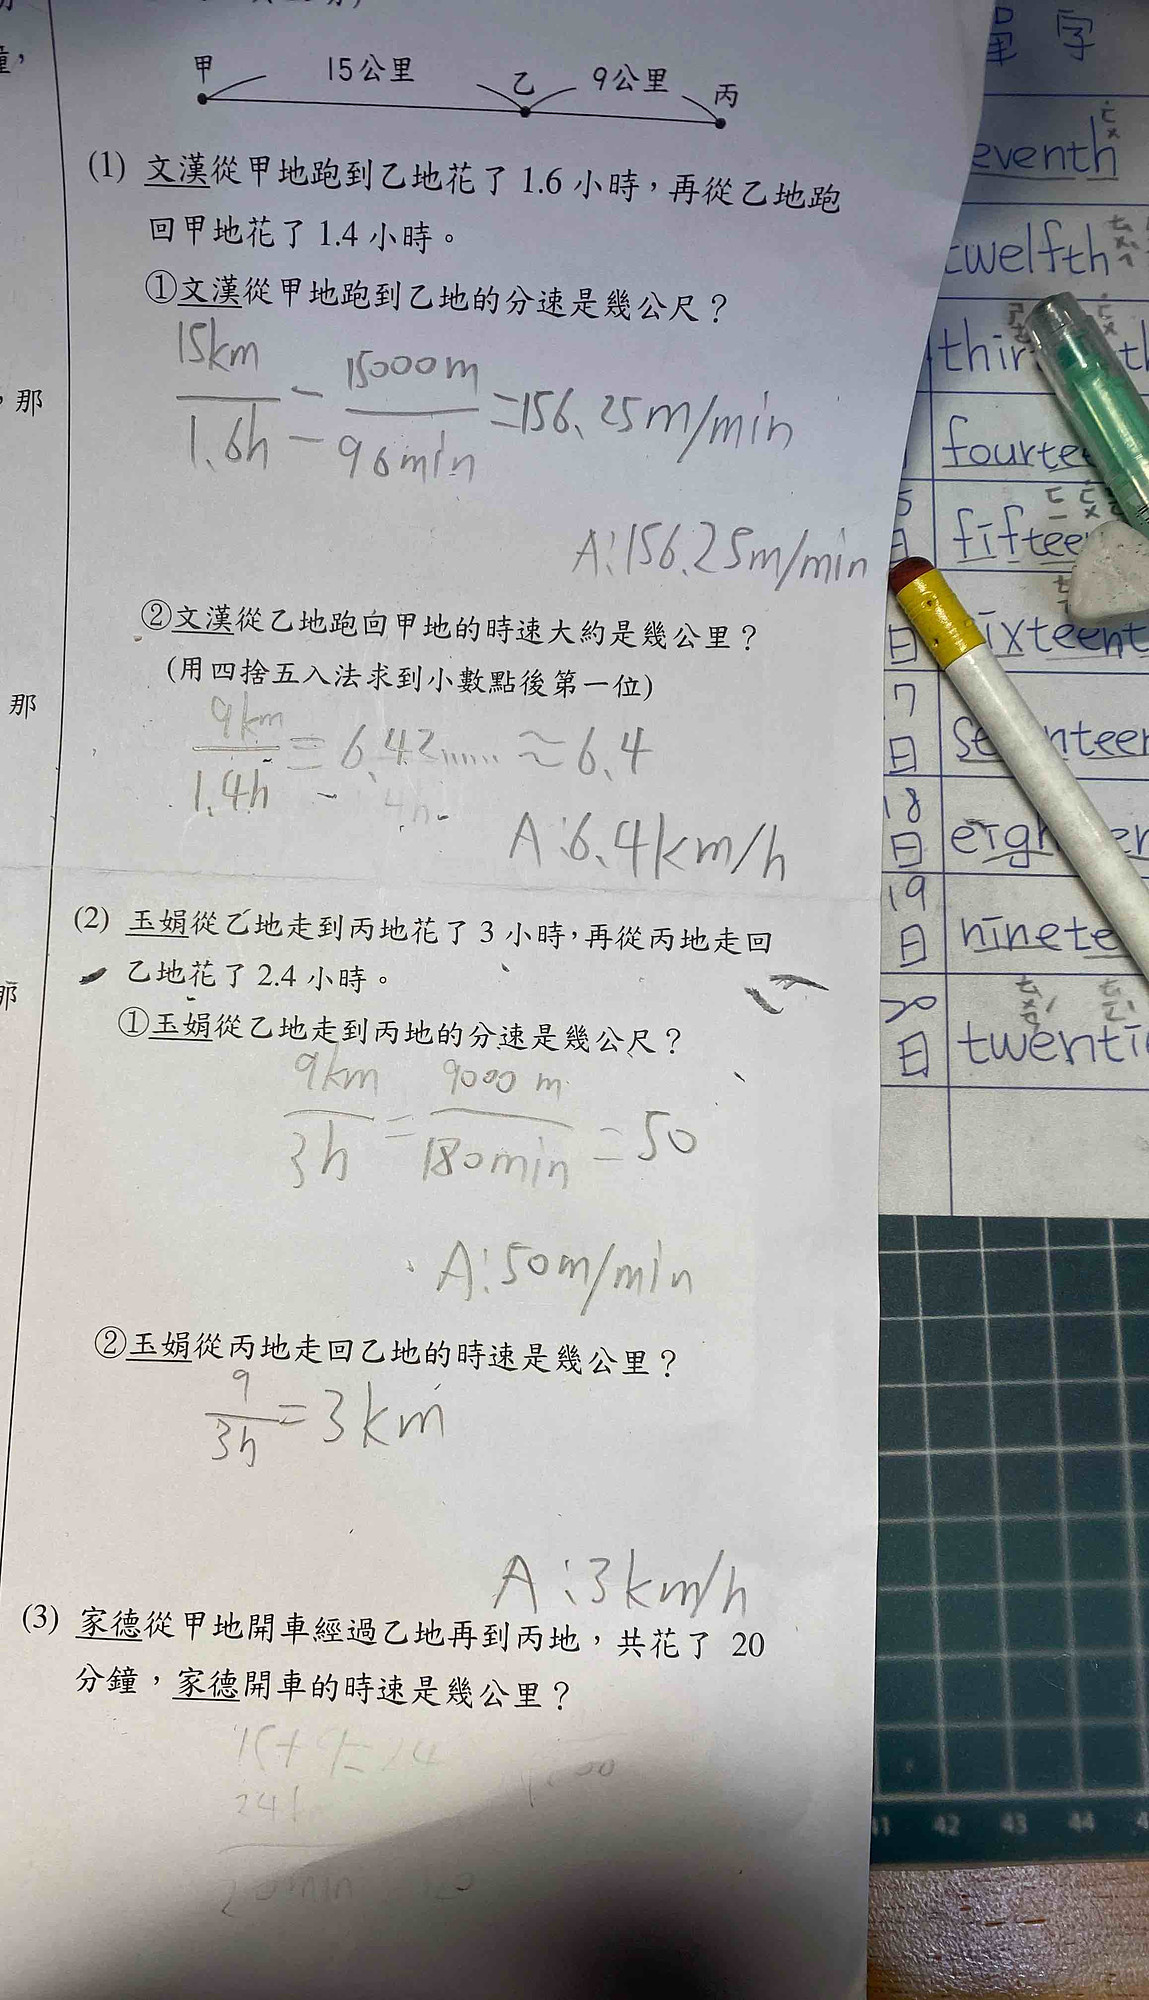 甲 15公里 乙 9公里 丙
(1) 文漢從甲地跑到乙地花了 1.6 小時，再從乙地跑
回甲地花了 1.4 小時。
①文漢從甲地跑到乙地的分速是幾公尺？
15km/1.6h = 15000m/96min = 156.25m/min
A:156.25m/min
②文漢從乙地跑向甲地的時速大約是幾公里？
(用四捨五入法求到小數點後第一位)
9km/1.4h = 6.42...... ≈ 6.4
A:6.4km/h
(2) 玉娟從乙地走到丙地花了 3 小時，再從丙地走回
乙地花了 2.4 小時。
①玉娟從乙地走到丙地的分速是幾公尺？
9km/3h = 9000m/180min = 50
A:50m/min
②玉娟從丙地走回乙地的時速是幾公里？
9/3h = 3km
A:3km/h
(3) 家德從甲地開車經過乙地再到丙地，共花了 20
分鐘，家德開車的時速是幾公里？
那
那
那
單字
eventh
twelfth
thir
fourtee
fifteen
日 ixteent
17日 se nteen
18日 eigh
19日 ninete
20日 twenti
41 42 43 44